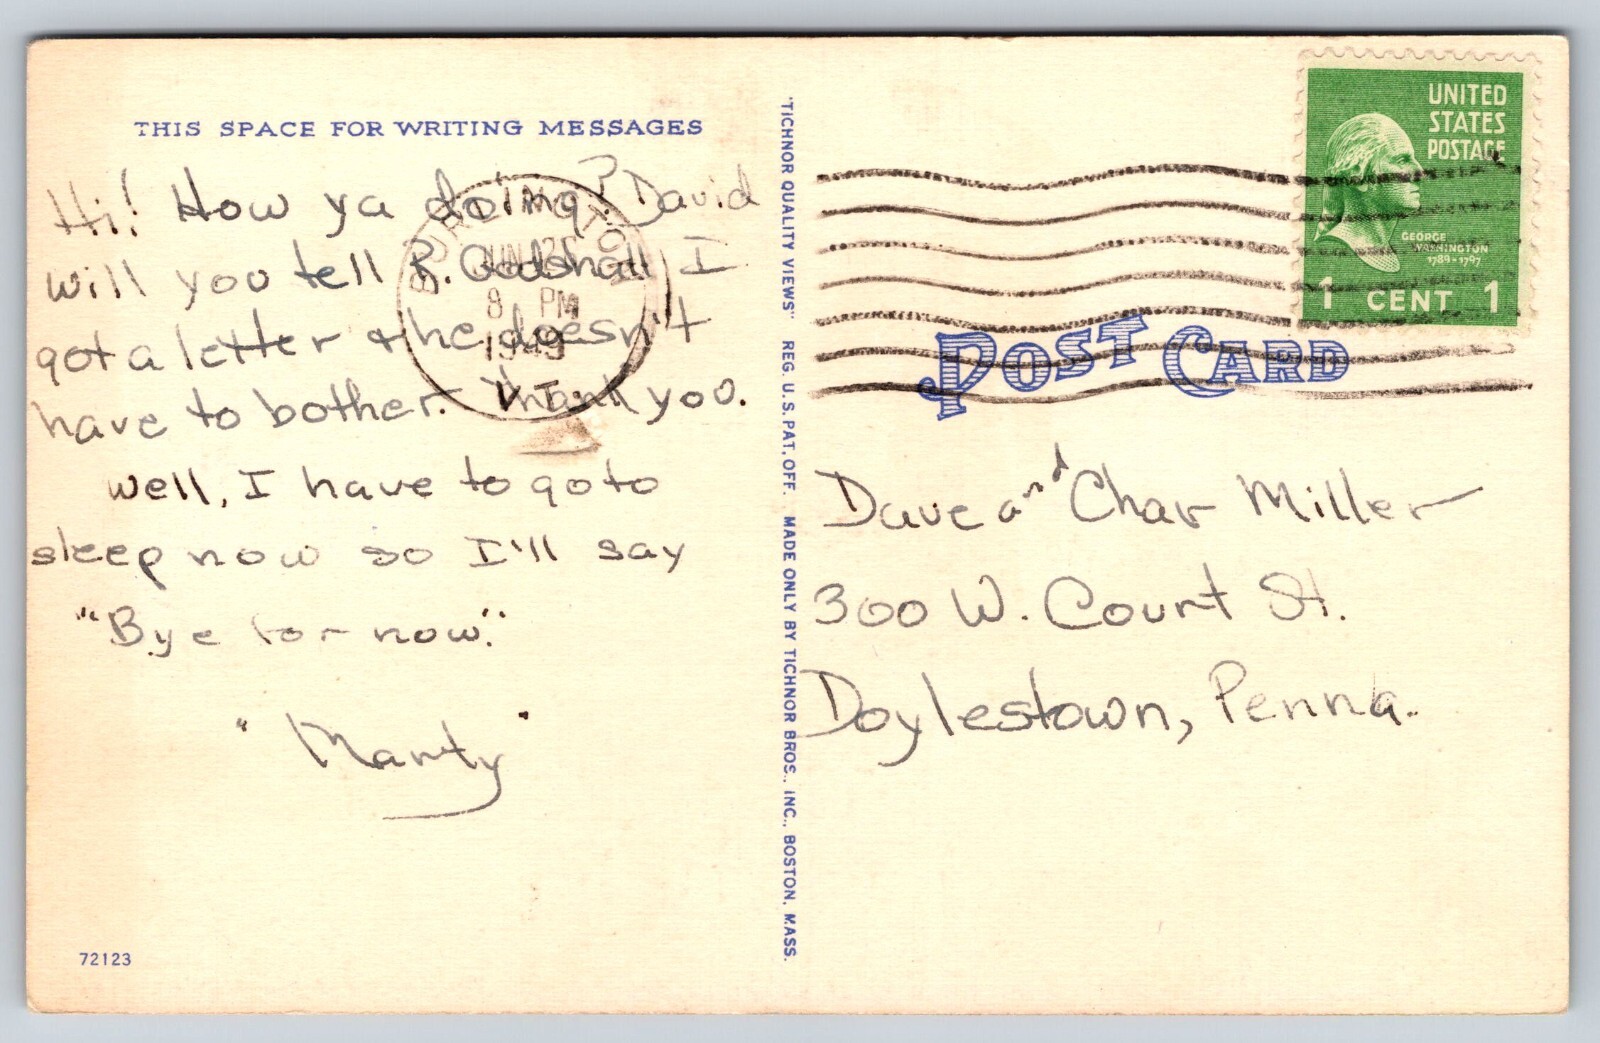 THIS SPACE FOR WRITING MESSAGES
Hi! How ya doing? David
will you tell R. Godshall I
got a letter & he doesn't
have to bother. Thank you.
well, I have to go to
sleep now so I'll say
"Bye for now."
"Marty"
72123
BURLINGTON
JUN 25
8 PM
1949
VT.
"TICHNOR QUALITY VIEWS" REG. U.S. PAT. OFF. MADE ONLY BY TICHNOR BROS., INC., BOSTON, MASS.
UNITED
STATES
POSTAGE
GEORGE
WASHINGTON
1789-1797
1 CENT 1
POST CARD
Dave and Char Miller
300 W. Court St.
Doylestown, Penna.